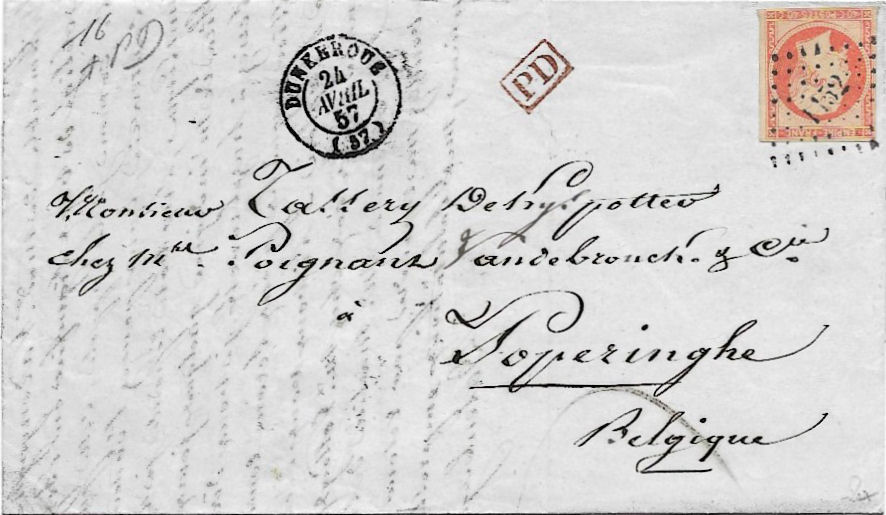 16
PD
DUNKERQUE
24
AVRIL
57
(57)
PD
1152
EMPIRE FRANC
Monsieur Tassery
chez Mrs Poignant Vandebrouck & Cie
à
Poperinghe
Belgique